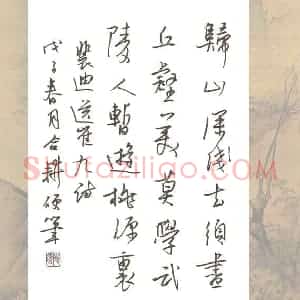 歸山深淺去須盡
丘壑美莫學武
陵人暫遊桃源裏
裴迪送崔九詩
戊子春月合耕硬筆
Shufaziliao.com